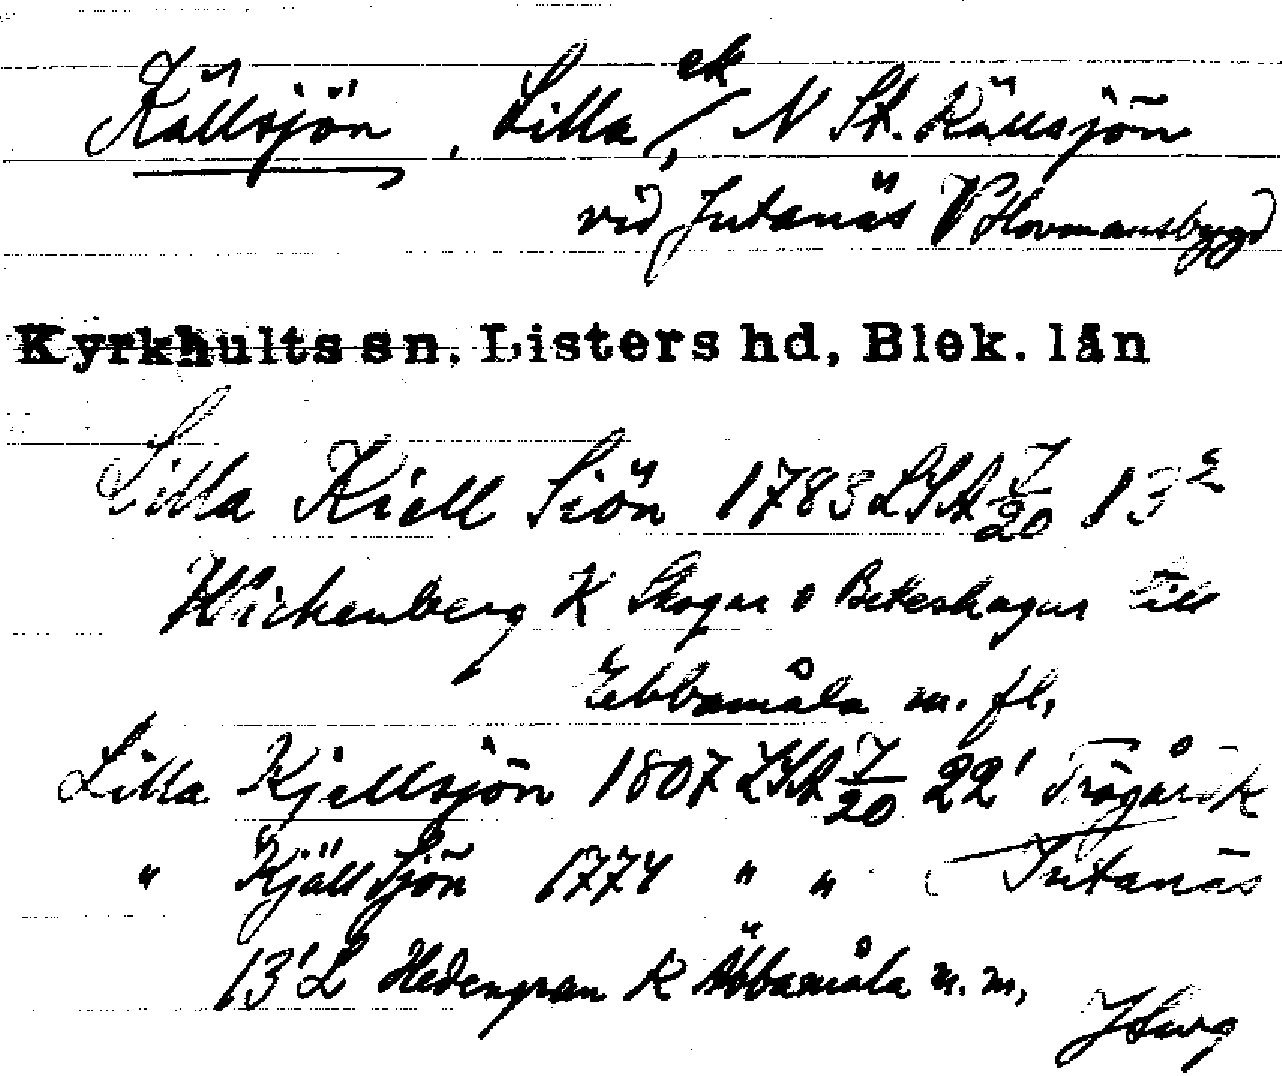 Källsjön, Lilla, ek N St. Källsjön
vid Jutanäs V Hovmansbygd
Kyrkhults sn, Listers hd, Blek. län
Lilla Kiell Siön 1783 LSA 7/20 13²
Wickenberg K Skogar o Beteshagar till
Ebbamåla m. fl.
Lilla Kjellsjön 1807 LSA 7/20 22'
" Kjäll Sjön 1774 " " Jutanäs
13' L Hedengran K Äbbamåla m. m.